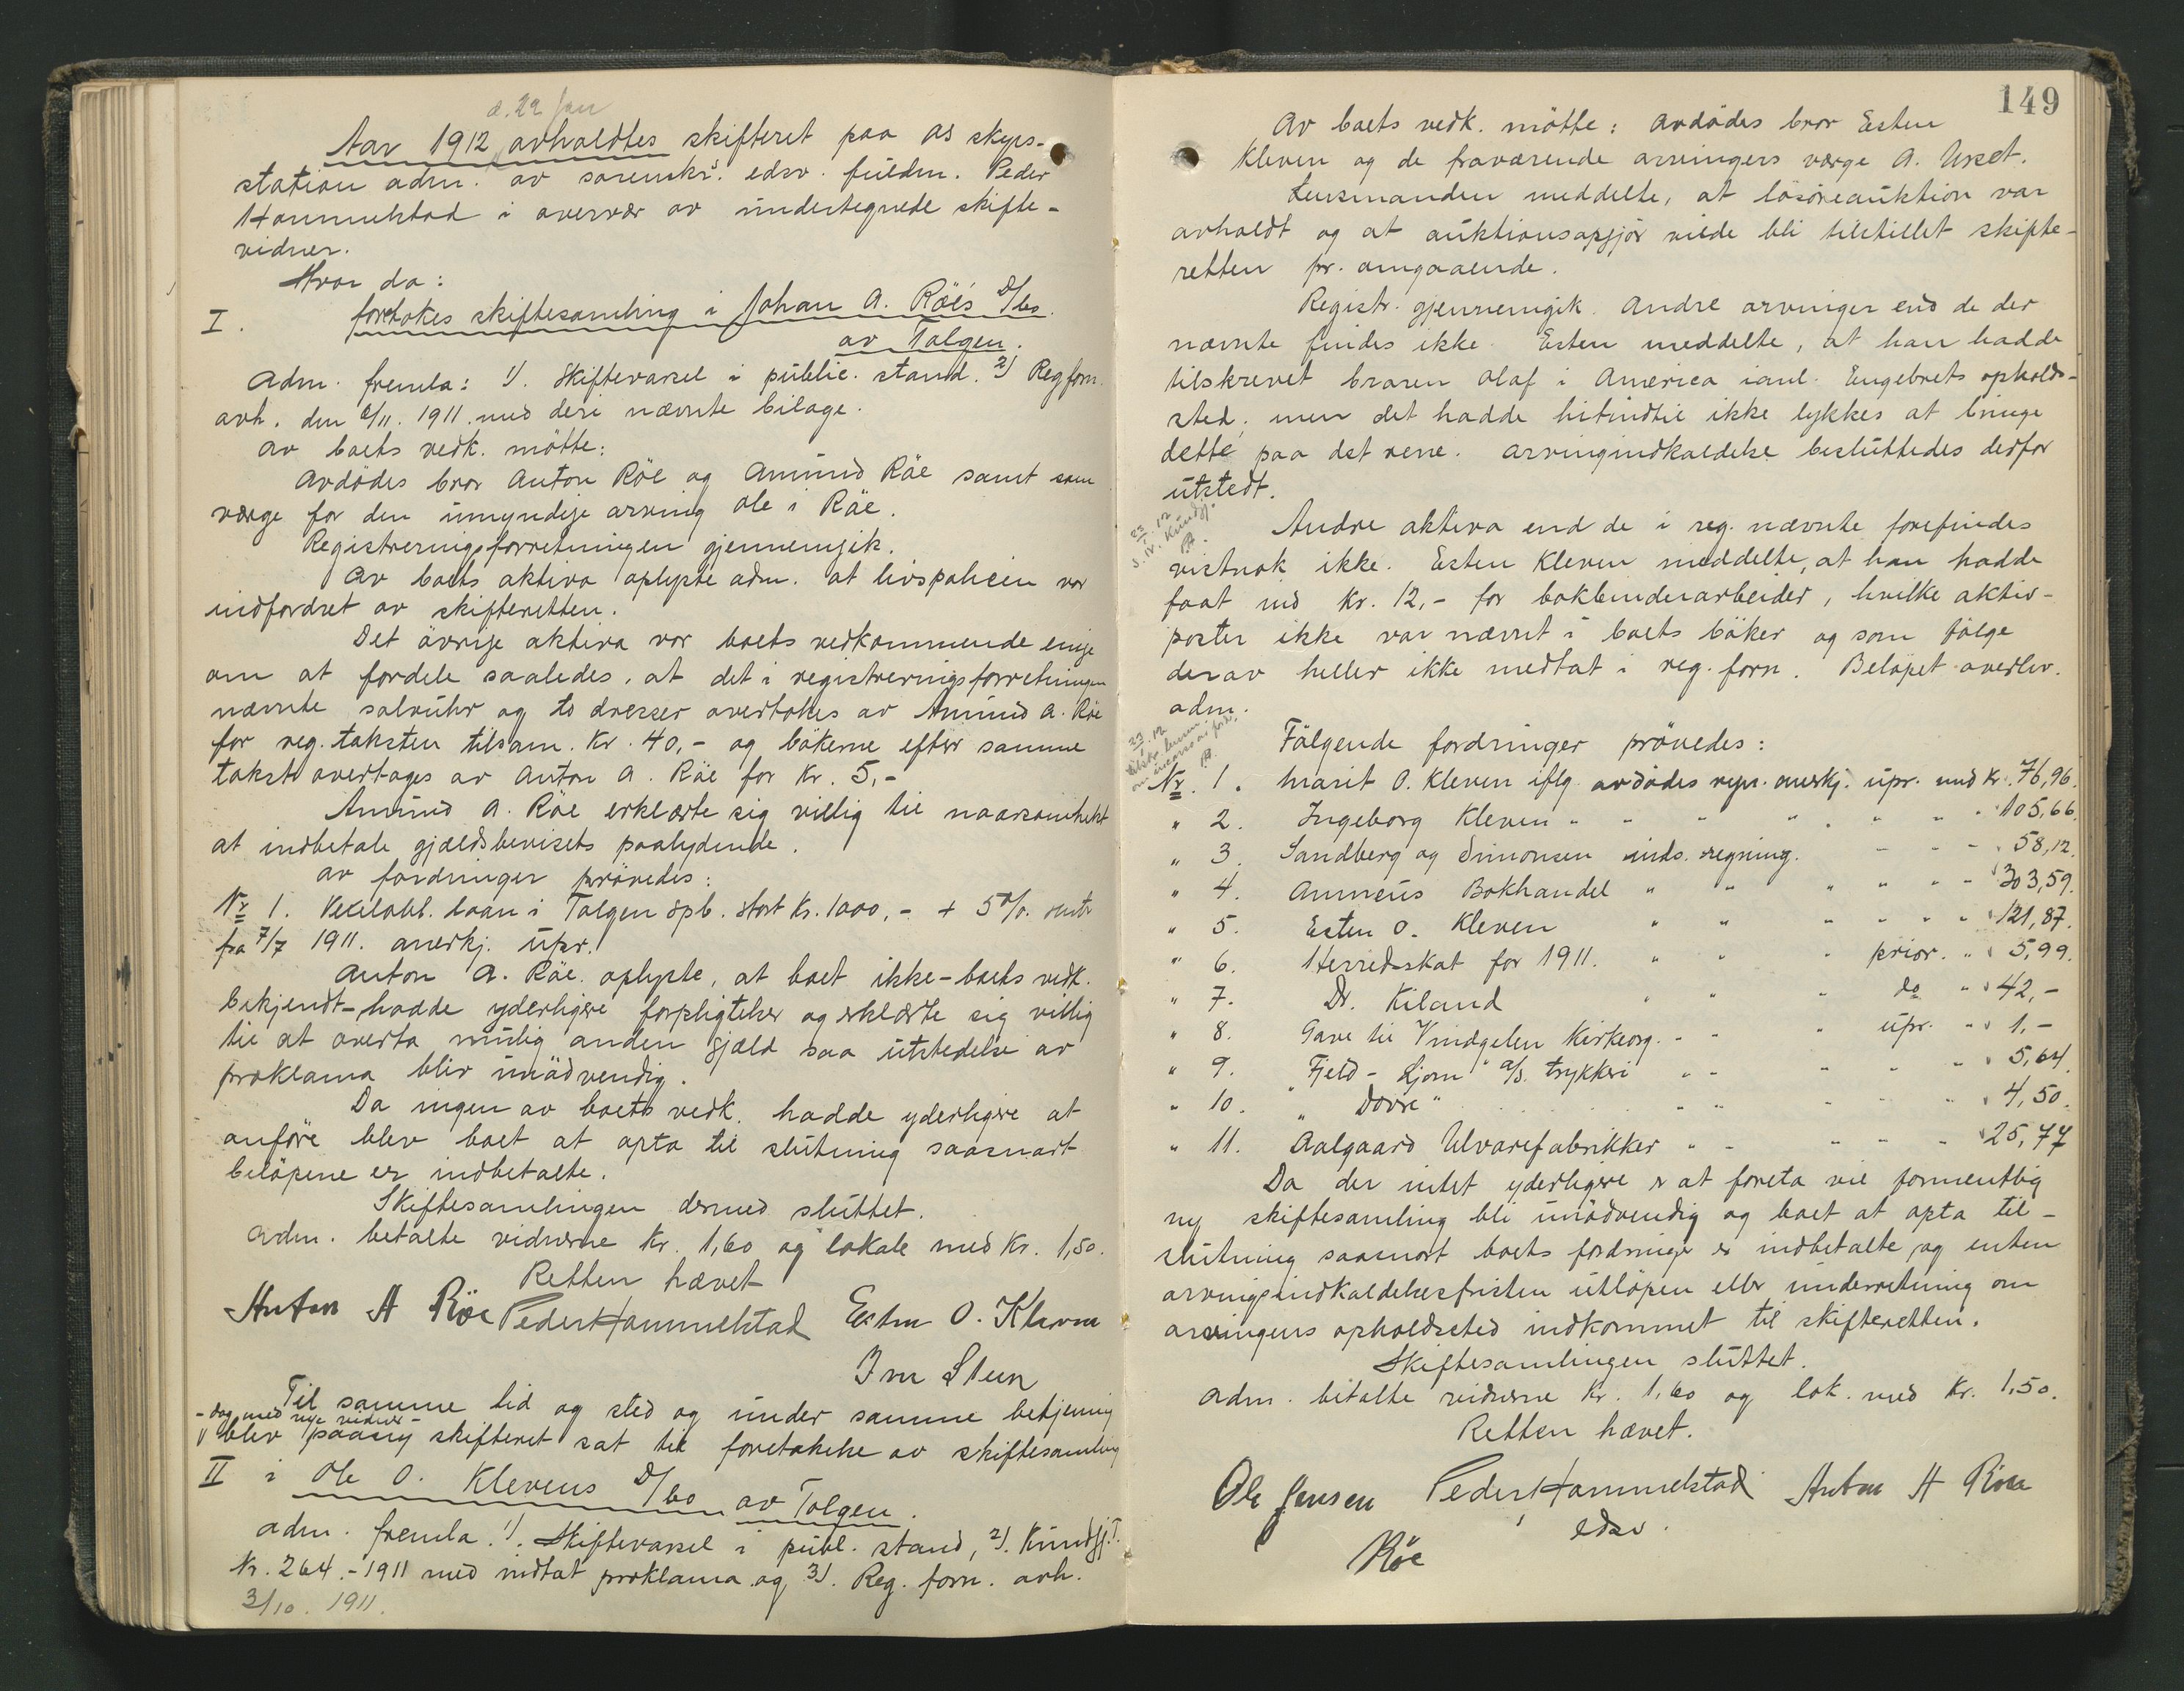 d. 22 Jan
Aar 1912 avholdtes skifteret paa Os skyds-
station adm. av sorenskr's. edsv. fuldm. Peder
Hammelstad i overvær av undertegnede skifte-
vidner.
Hvor da:
I. foretokes skiftesamling i Johan A. Röe's D/bo.
av Tolgen.
Adm. fremla: 1). Skiftevarsel i public. stand. 2) Reg forn.
avh. den 6/11. 1911. med deri nævnte bilage.
Av boets vedk. mötte:
Avdödes bror Anton Röe og Amund Röe samt som
værge for den umyndige arving Ole i Röe.
Registreringsforretningen gjennemgik.
Av boets aktiva oplyste adm. at livspolicen var
indfordret av skifteretten.
Det övrige aktiva var boets vedkommende enige
om at fordele saaledes, at det i registreringsforretningen
nævnte sølvuhr og to dresser overtokes av Amund A. Röe
for reg. taksten tilsam. Kr. 40,- og bökerne efter samme
takst overtages av Anton A. Röe for Kr. 5,-
Amund A. Röe erklærte sig villig til naarsomhelst
at indbetale gjældsbevisets paalydende.
Av fordringer prövedes:
No 1. Vexelobl. laan i Tolgen Spb. stort Kr. 1000,- + 5% rente
fra 7/7 1911. anerkj. upr.
Anton A. Röe oplyste, at boet ikke - boets vedk.
bekjendt - hadde yderligere forpligtelser og erklærte sig villig
til at overta mulig anden gjæld saa utstedelse av
proklama blir unödvendig.
Da ingen av boets vedk. hadde yderligere at
anföre blev boet at opta til slutning saasnart
belöpene er indbetalte.
Skiftesamlingen dermed sluttet.
Adm. betalte vidnerne Kr. 1,60 og lokale med Kr. 1,50.
Retten hævet
Anton A Röe Peder Hammelstad Esten O. Kleven
Stuen
Til samme tid og sted og under samme betjening
- dog med nye vidner -
blev paany skifteret sat til foretakelse av skiftesamling
II i Ole O. Klevens D/bo av Tolgen.
Adm. fremla. 1). Skiftevarsel i publ. stand, 2). Kundgj.T.
Nr. 264.-1911 med indtat proklama og 3). Reg. forn. avh.
3/10. 1911.
149
Av boets vedk. mötte: Avdödes bror Esten
Kleven og de fraværende arvingers værge A. Urset.
Lensmanden meddelte, at lösöreauktion var
avholdt og at auktionsopgjör vilde bli tilstillet skifte-
retten pr. omgaaende.
Registr. gjennemgik. Andre arvinger end de der
nævnte findes ikke. Esten meddelte, at han hadde
tilskrevet broren Olaf i America ianl. Engebrets opholds-
sted, men det hadde hitindtil ikke lykkes at bringe
dette paa det rene. Arvingindkaldelse besluttedes derfor
utstedt.
Andre aktiva end de i reg. nævnte forefindes
vistnok ikke. Esten Kleven meddelte, at han hadde
faat ind Kr. 12,- for bokbinderarbeider, hvilke aktiv-
poster ikke var nævnt i boets böker og som fölge
derav heller ikke medtat i reg. forn. Belöpet overlev.
adm.
Fölgende fordringer prövedes:
No. 1. Marit O. Kleven iflg. avdödes regn. anerkj. upr. med Kr. 76,96.
" 2. Ingeborg Kleven " " " " " " " 105,66.
" 3. Sandberg og Simonsen inds. regning. " " " 58,12.
" 4. Amneus Bokhandel " " " " " " 303,59.
" 5. Esten O. Kleven " " " " " " 121,87.
" 6. Herredsskat for 1911. " " " prior. " 5,99.
" 7. Dr. Kiland " " " do " 42,-
" 8. Gave til Vindgelen Kirkeorg. - - " upr. " 1,-
" 9. "Fjeld-Ljom" A/S. trykkeri " " " " " 5,64.
" 10. "Dovre" " " " " " 4,50.
" 11. Aalgaard Ulvarefabrikker " " " " " 25,77
Da der intet yderligere er at foreta vil formentlig
ny skiftesamling bli unödvendig og boet at opta til
slutning saasnart boets fordringer er indbetalte og enten
arvingsindkaldelsesfristen utlöpen eller underretning om
arvingens opholdssted indkommet til skifteretten.
Skiftesamlingen sluttet.
Adm. betalte vidnerne Kr. 1,60 og lok. med Kr. 1,50.
Retten hævet.
Ole Jensen Peder Hammelstad Anton A Röe
edsv.
Röe